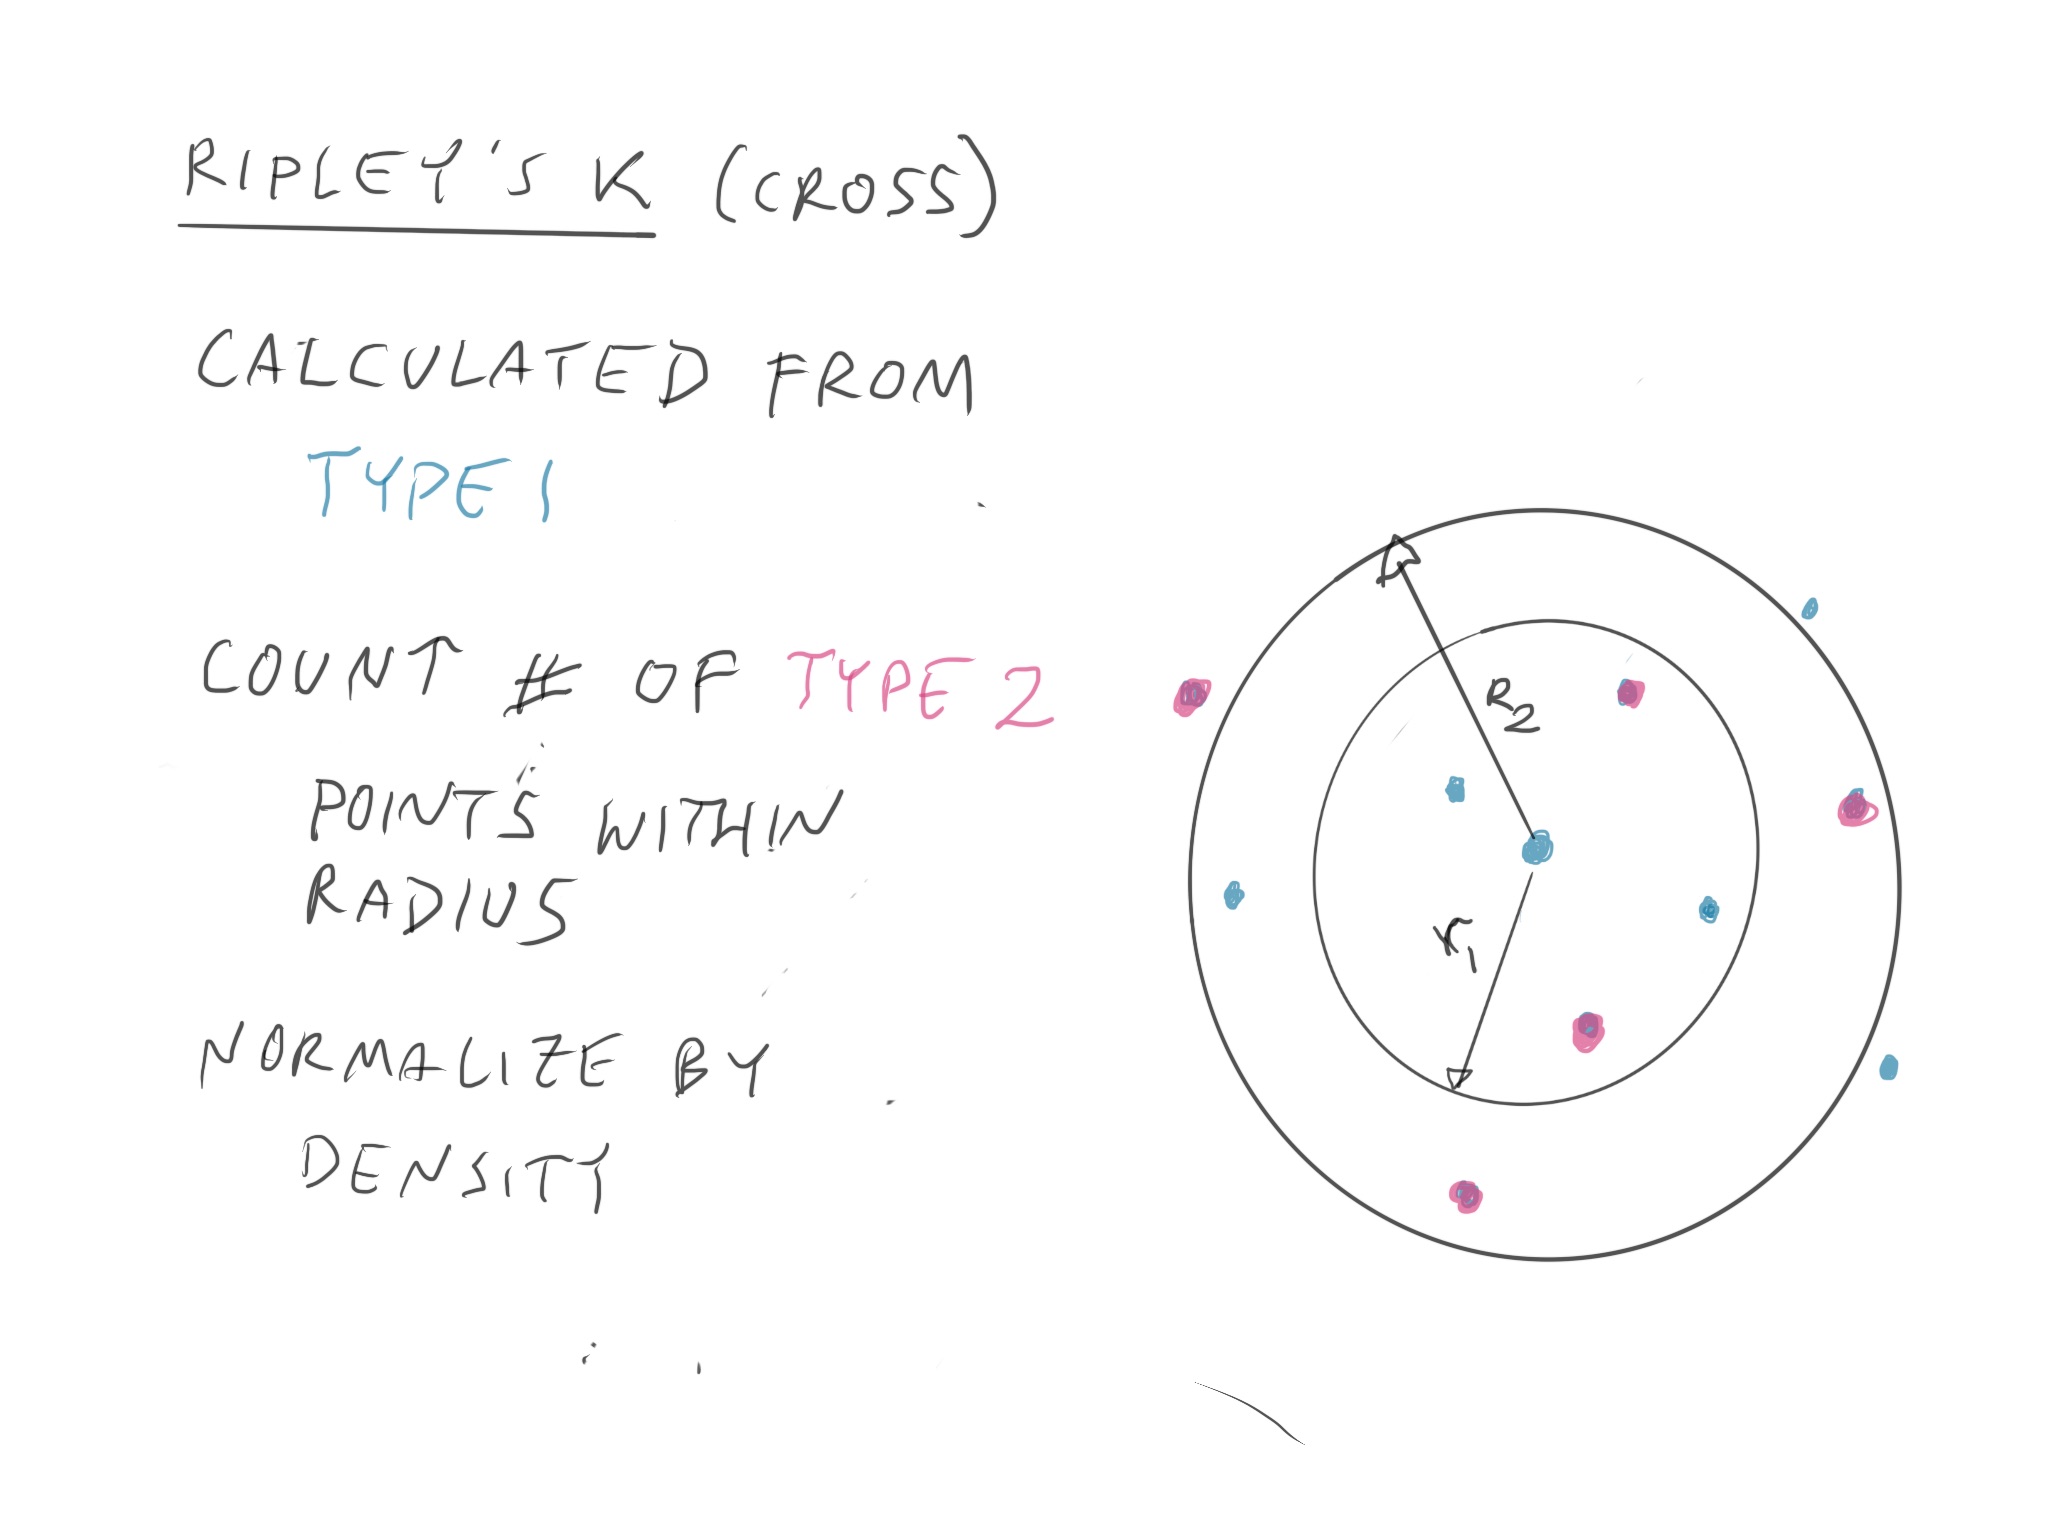 RIPLEY'S K (CROSS)
CALCULATED FROM
TYPE 1
COUNT # OF TYPE 2
POINTS WITHIN
RADIUS
NORMALIZE BY
DENSITY
R2
r1